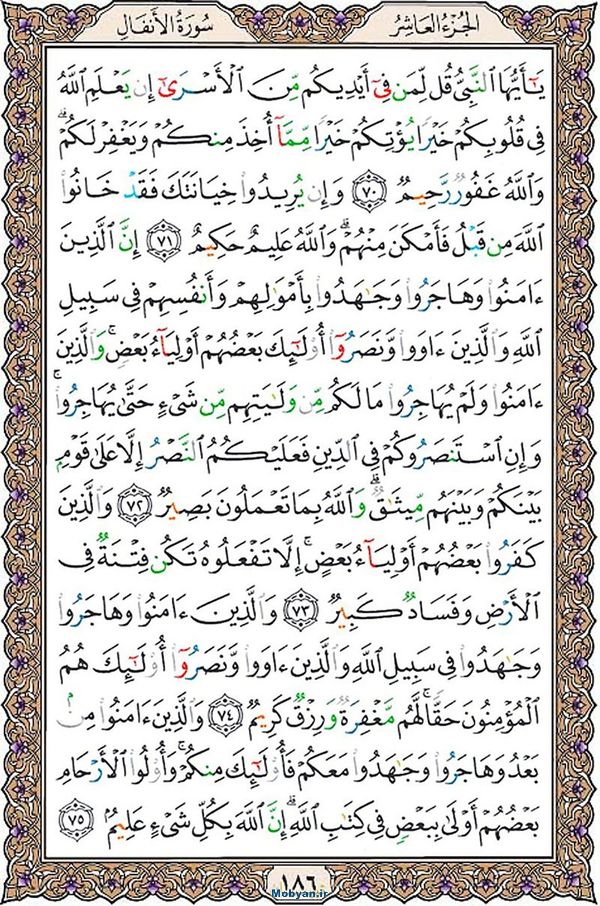 الجُزْءُ العَاشِرُ
سُورَةُ الأَنفَالِ
يَٰٓأَيُّهَا ٱلنَّبِىُّ قُل لِّمَن فِىٓ أَيْدِيكُم مِّنَ ٱلْأَسْرَىٰٓ إِن يَعْلَمِ ٱللَّهُ
فِى قُلُوبِكُمْ خَيْرًا يُؤْتِكُمْ خَيْرًا مِّمَّآ أُخِذَ مِنكُمْ وَيَغْفِرْ لَكُمْ ۗ
وَٱللَّهُ غَفُورٌ رَّحِيمٌ ﴿٧٠﴾ وَإِن يُرِيدُوا۟ خِيَانَتَكَ فَقَدْ خَانُوا۟
ٱللَّهَ مِن قَبْلُ فَأَمْكَنَ مِنْهُمْ ۗ وَٱللَّهُ عَلِيمٌ حَكِيمٌ ﴿٧١﴾ إِنَّ ٱلَّذِينَ
ءَامَنُوا۟ وَهَاجَرُوا۟ وَجَٰهَدُوا۟ بِأَمْوَٰلِهِمْ وَأَنفُسِهِمْ فِى سَبِيلِ
ٱللَّهِ وَٱلَّذِينَ ءَاوَوا۟ وَّنَصَرُوٓا۟ أُو۟لَٰٓئِكَ بَعْضُهُمْ أَوْلِيَآءُ بَعْضٍ ۚ وَٱلَّذِينَ
ءَامَنُوا۟ وَلَمْ يُهَاجِرُوا۟ مَا لَكُم مِّن وَلَٰيَتِهِم مِّن شَىْءٍ حَتَّىٰ يُهَاجِرُوا۟ ۚ
وَإِنِ ٱسْتَنصَرُوكُمْ فِى ٱلدِّينِ فَعَلَيْكُمُ ٱلنَّصْرُ إِلَّا عَلَىٰ قَوْمٍۭ
بَيْنَكُمْ وَبَيْنَهُم مِّيثَٰقٌ ۗ وَٱللَّهُ بِمَا تَعْمَلُونَ بَصِيرٌ ﴿٧٢﴾ وَٱلَّذِينَ
كَفَرُوا۟ بَعْضُهُمْ أَوْلِيَآءُ بَعْضٍ ۚ إِلَّا تَفْعَلُوهُ تَكُن فِتْنَةٌ فِى
ٱلْأَرْضِ وَفَسَادٌ كَبِيرٌ ﴿٧٣﴾ وَٱلَّذِينَ ءَامَنُوا۟ وَهَاجَرُوا۟
وَجَٰهَدُوا۟ فِى سَبِيلِ ٱللَّهِ وَٱلَّذِينَ ءَاوَوا۟ وَّنَصَرُوٓا۟ أُو۟لَٰٓئِكَ هُمُ
ٱلْمُؤْمِنُونَ حَقًّا ۚ لَّهُم مَّغْفِرَةٌ وَرِزْقٌ كَرِيمٌ ﴿٧٤﴾ وَٱلَّذِينَ ءَامَنُوا۟ مِنۢ
بَعْدُ وَهَاجَرُوا۟ وَجَٰهَدُوا۟ مَعَكُمْ فَأُو۟لَٰٓئِكَ مِنكُمْ ۚ وَأُو۟لُوا۟ ٱلْأَرْحَامِ
بَعْضُهُمْ أَوْلَىٰ بِبَعْضٍ فِى كِتَٰبِ ٱللَّهِ ۗ إِنَّ ٱللَّهَ بِكُلِّ شَىْءٍ عَلِيمٌۢ ﴿٧٥﴾
١٨٦
Mobyan.ir